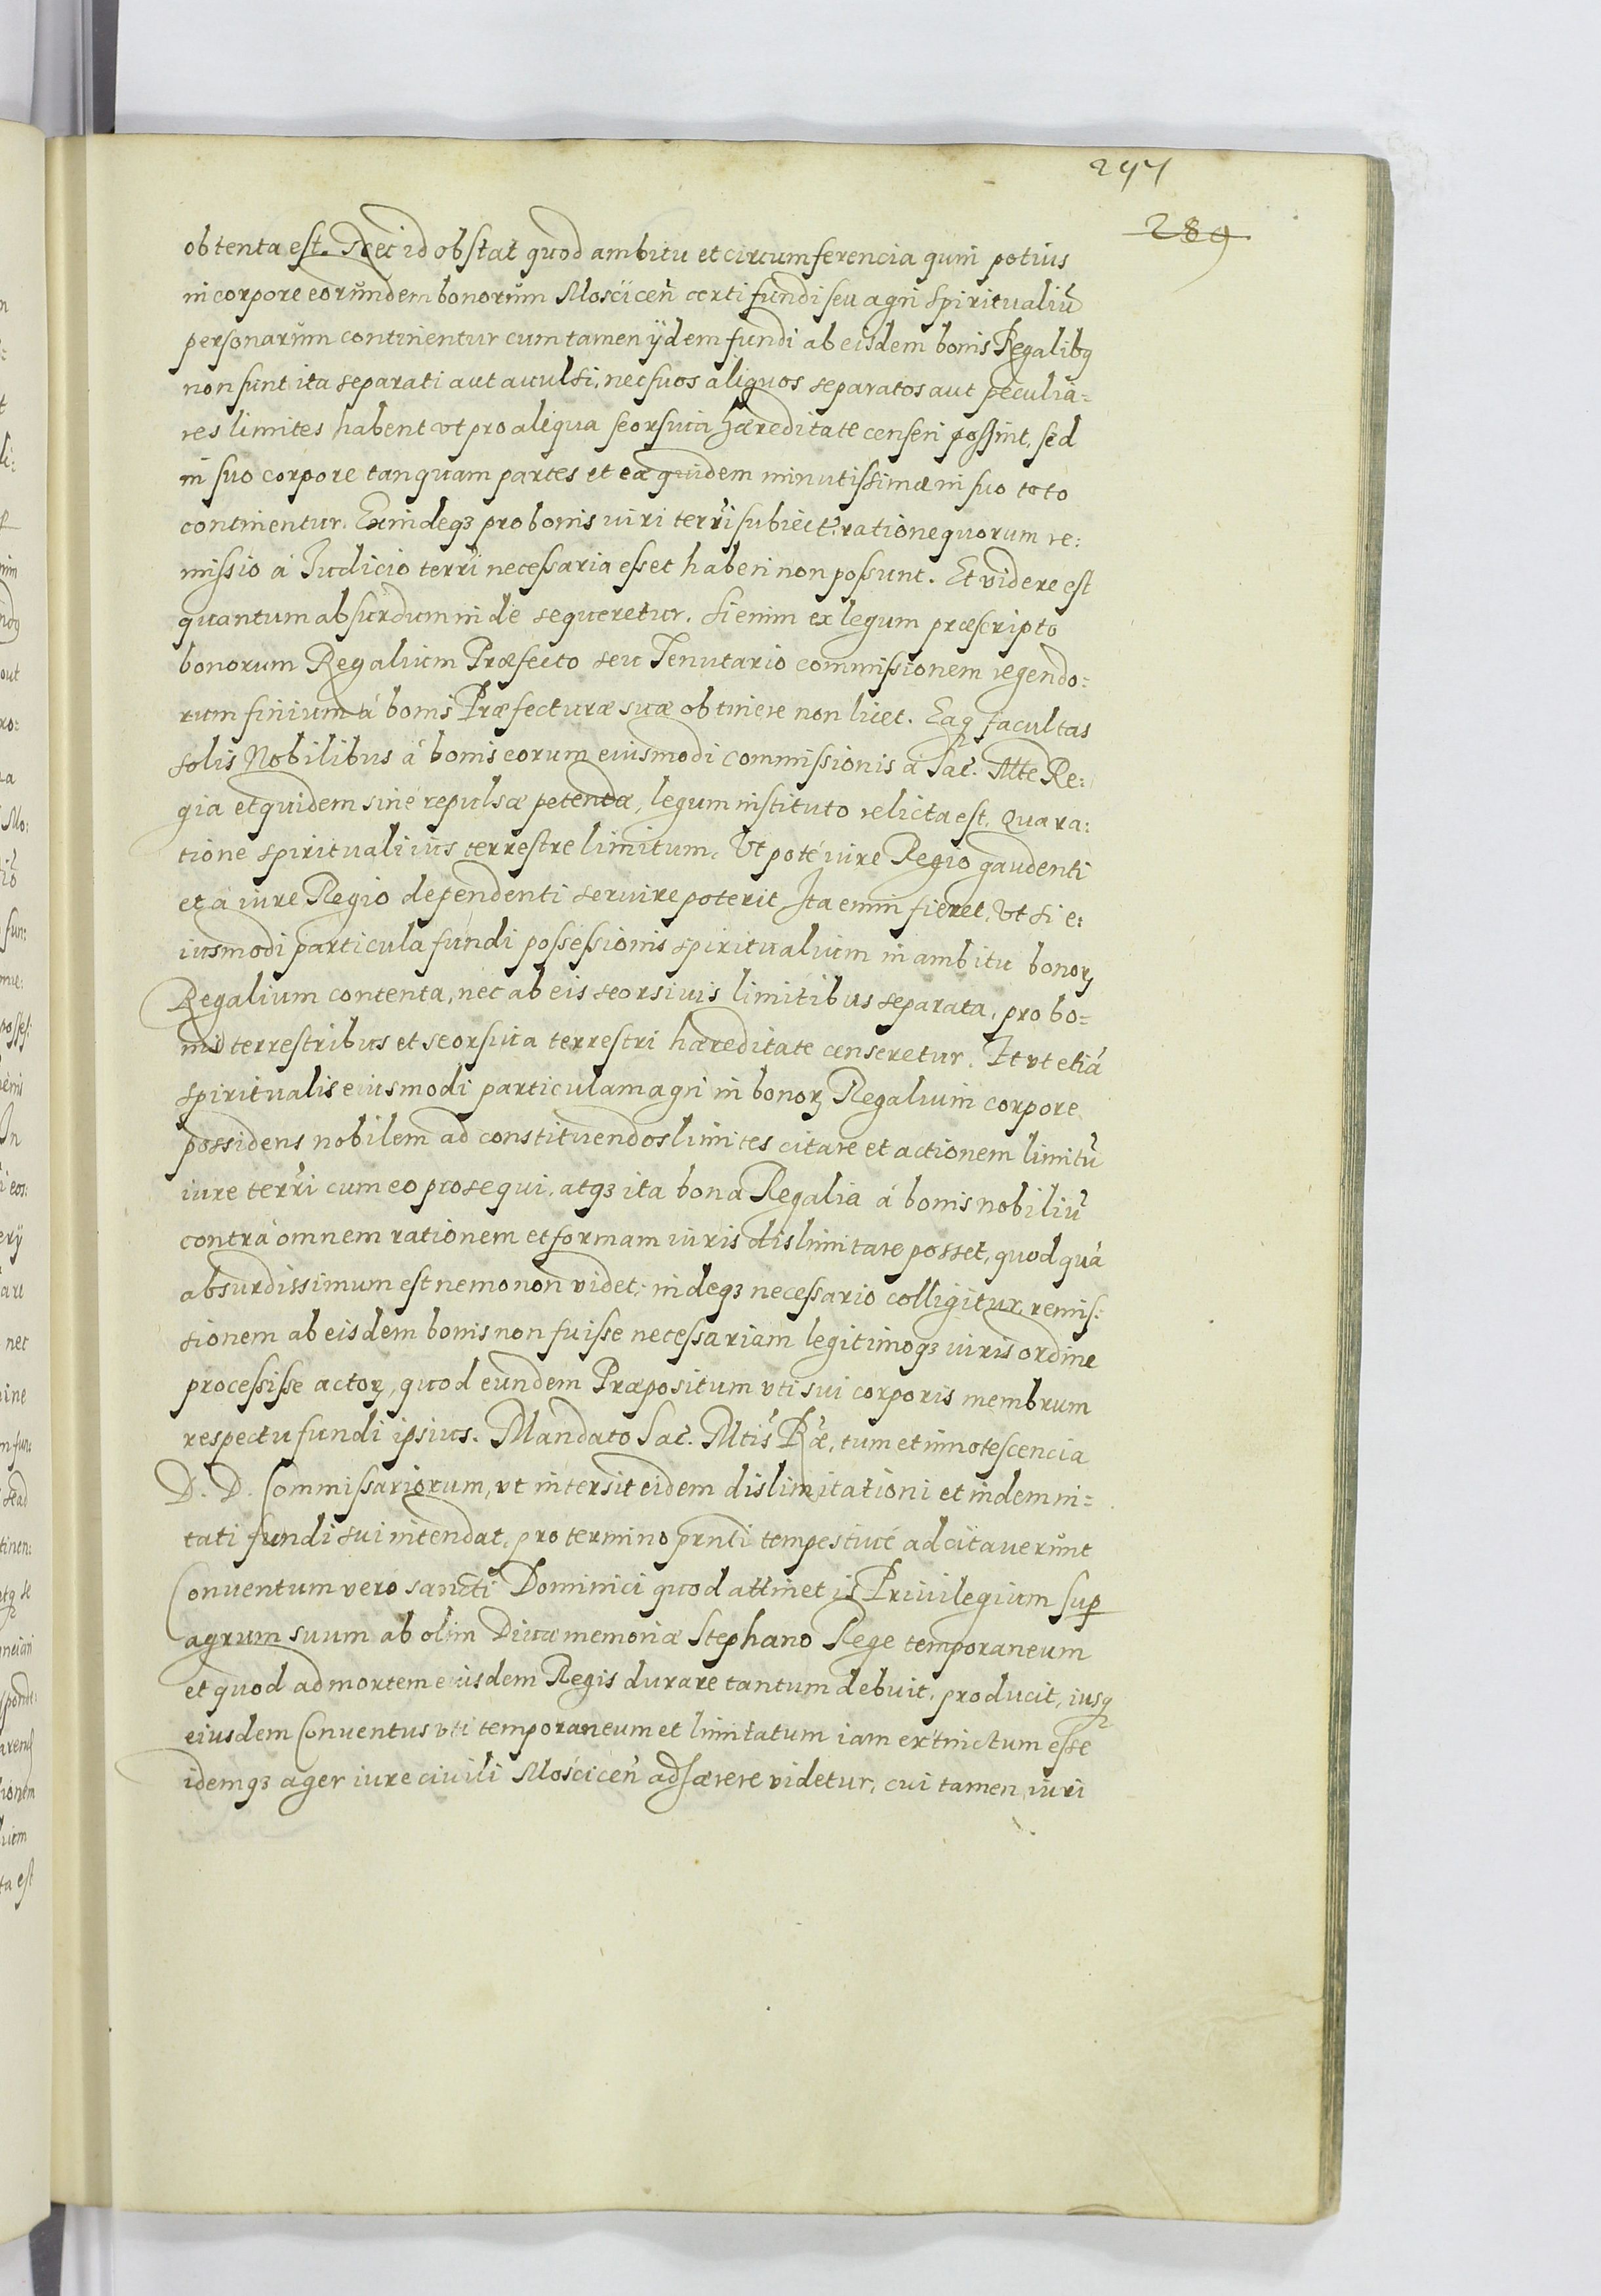 297
289
obtenta est. Nec id obstat quod ambitu et circumferencia quin potius
in corpore eorundem bonorum Mościcen̄ certi fundi seu agri spiritualiū
personarum continentur cum tamen ijdem fundi ab eisdem bonis Regalibq
non sunt ita separati aut auulsi, nec suos aliquos separatos aut peculia=
res limites habent vt pro aliqua seorsiua hæreditate censeri possint, sed
in suo corpore tanquam partes et eæ quidem minutissimæ in suo toto
continentur. Exindeqz pro bonis iuri terrī subiect: ratione quorum re:
missio á Iudicio terrī necessaria esset haberi non possunt. Et videre est
quantum absurdum inde sequeretur. Si enim ex legum præscripto
bonorum Regalium Præfecto seu Tenutario commissionem regendo=
rum finium á bonis Præfecturæ suæ obtinere non licet. Eaq facultas
solis Nobilibus á bonis eorum eiusmodi commissionis a Sac. Mtte Re:
gia et quidem sine repulsæ petendæ, legum instituto relicta est. Qua ra:
tione spirituali ius terrestre limitum. Vt poté iure Regio gaudenti
et á iure Regio dependenti seruire poterit Ita enim fieret, Vt si e:
iusmodi particula fundi possessionis spiritualium in ambitu bonorȝ
Regalium contenta, nec ab eis seorsiuis limitibus separata, pro bo=
nis terrestribus et seorsiua terrestri hæreditate censeretur. It vt etiā
spiritualis eiusmodi particulam agri in bonorȝ Regalium corpore
possidens nobilem ad constituendos limites citare et actionem limitū
iure terrī cum eo prosequi, atqz ita bona Regalia á bonis nobiliū
contrá omnem rationem et formam iuris dislimitare posset, quod quā
absurdissimum est nemo non videt, indeqz necessario colligitur, remis:
sionem ab eisdem bonis non fuisse necessariam legitimoqz iuris ordine
processisse actorȝ, quod eundem Præpositum vti sui corporis membrum
respectu fundi ipsius. Mandato Sac. Mtis Ræ, tum et innotescencia
D. D. Commissariorum, vt intersit eidem dislimitationi et indemni=
tati fundi sui intendat, pro termino prnti tempestiué adcitauerunt
Conventum vero sancti Dominici quod attinet is Priuilegium sup
agrum suum ab olim Diuæ memoriæ Stephano Rege temporaneum
et quod ad mortem eiusdem Regis durare tantum debuit, producit, iusq
eiusdem Conventus vti temporaneum et limitatum iam extinctum esse
idemqz ager iure ciuili Mościcen̄ adhærere videtur, cui tamen iuri